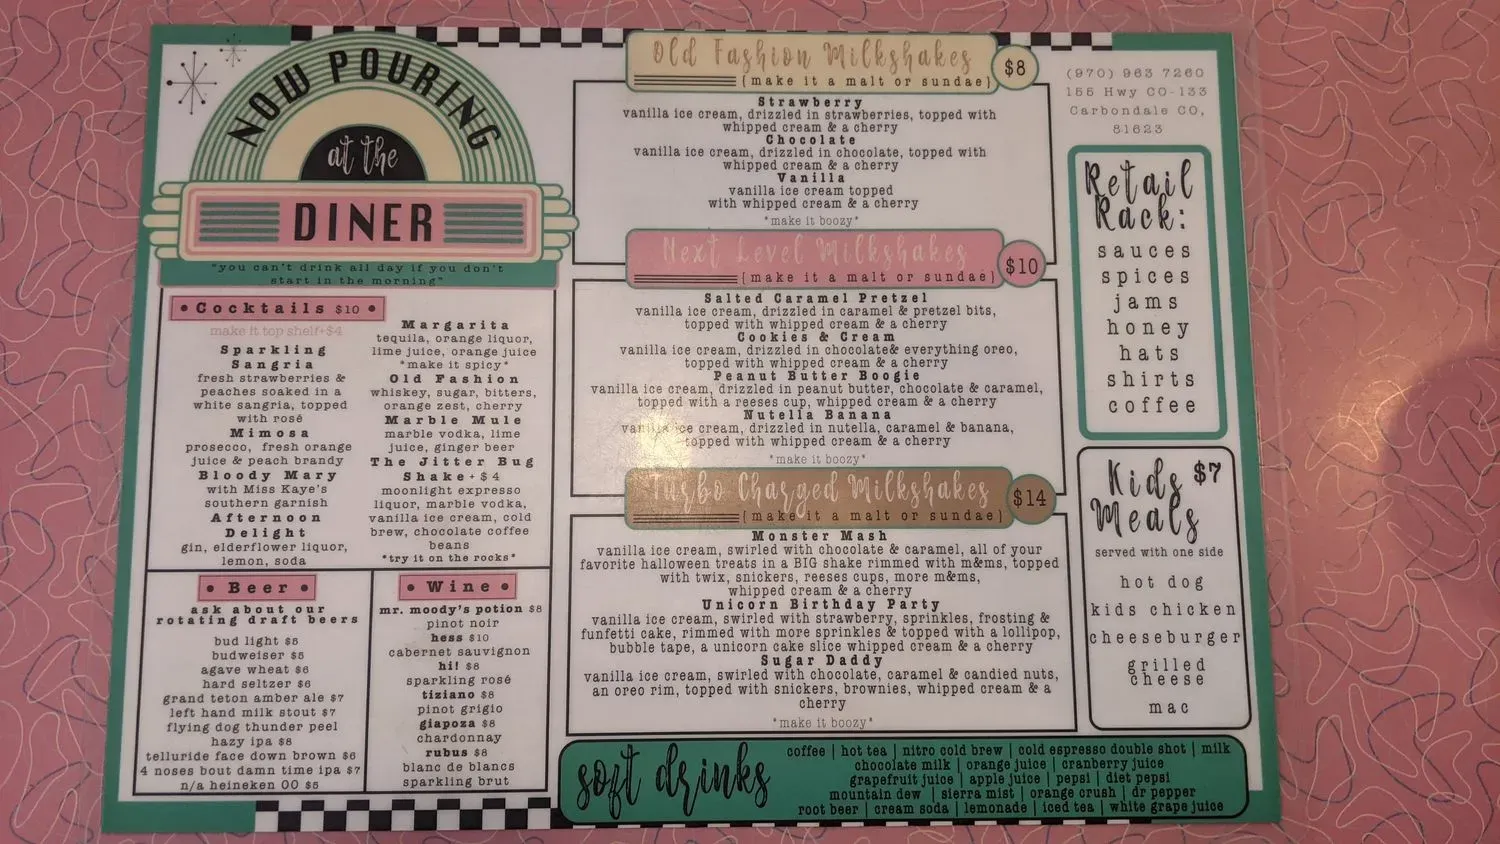 NOW POURING
at the
DINER
"you can't drink all day if you don't
start in the morning"
• Cocktails $10 •
make it top shelf+$4
Sparkling
Sangria
fresh strawberries &
peaches soaked in a
white sangria, topped
with rosé
Mimosa
prosecco, fresh orange
juice & peach brandy
Bloody Mary
with Miss Kaye's
southern garnish
Afternoon
Delight
gin, elderflower liquor,
lemon, soda
Margarita
tequila, orange liquor,
lime juice, orange juice
*make it spicy*
Old Fashion
whiskey, sugar, bitters,
orange zest, cherry
Marble Mule
marble vodka, lime
juice, ginger beer
The Jitter Bug
Shake + $4
moonlight expresso
liquor, marble vodka,
vanilla ice cream, cold
brew, chocolate coffee
beans
*try it on the rocks*
• Beer •
ask about our
rotating draft beers
bud light $5
budweiser $5
agave wheat $6
hard seltzer $6
grand teton amber ale $7
left hand milk stout $7
flying dog thunder peel
hazy ipa $8
telluride face down brown $6
4 noses bout damn time ipa $7
n/a heineken 00 $5
• Wine •
mr. moody's potion $8
pinot noir
hess $10
cabernet sauvignon
hi! $8
sparkling rosé
tiziano $8
pinot grigio
giapoza $8
chardonnay
rubus $8
blanc de blancs
sparkling brut
Old Fashion Milkshakes
{make it a malt or sundae}
$8
Strawberry
vanilla ice cream, drizzled in strawberries, topped with
whipped cream & a cherry
Chocolate
vanilla ice cream, drizzled in chocolate, topped with
whipped cream & a cherry
Vanilla
vanilla ice cream topped
with whipped cream & a cherry
*make it boozy*
Next Level Milkshakes
{make it a malt or sundae}
$10
Salted Caramel Pretzel
vanilla ice cream, drizzled in caramel & pretzel bits,
topped with whipped cream & a cherry
Cookies & Cream
vanilla ice cream, drizzled in chocolate& everything oreo,
topped with whipped cream & a cherry
Peanut Butter Boogie
vanilla ice cream, drizzled in peanut butter, chocolate & caramel,
topped with a reeses cup, whipped cream & a cherry
Nutella Banana
vanilla ice cream, drizzled in nutella, caramel & banana,
topped with whipped cream & a cherry
*make it boozy*
Turbo Charged Milkshakes
{make it a malt or sundae}
$14
Monster Mash
vanilla ice cream, swirled with chocolate & caramel, all of your
favorite halloween treats in a BIG shake rimmed with m&ms, topped
with twix, snickers, reeses cups, more m&ms,
whipped cream & a cherry
Unicorn Birthday Party
vanilla ice cream, swirled with strawberry, sprinkles, frosting &
funfetti cake, rimmed with more sprinkles & topped with a lollipop,
bubble tape, a unicorn cake slice whipped cream & a cherry
Sugar Daddy
vanilla ice cream, swirled with chocolate, caramel & candied nuts,
an oreo rim, topped with snickers, brownies, whipped cream & a
cherry
*make it boozy*
(970) 963 7260
155 Hwy CO-133
Carbondale CO,
81623
Retail
Rack:
sauces
spices
jams
honey
hats
shirts
coffee
Kids $7
Meals
served with one side
hot dog
kids chicken
cheeseburger
grilled
cheese
mac
soft drinks
coffee | hot tea | nitro cold brew | cold espresso double shot | milk
chocolate milk | orange juice | cranberry juice
grapefruit juice | apple juice | pepsi | diet pepsi
mountain dew | sierra mist | orange crush | dr pepper
root beer | cream soda | lemonade | iced tea | white grape juice